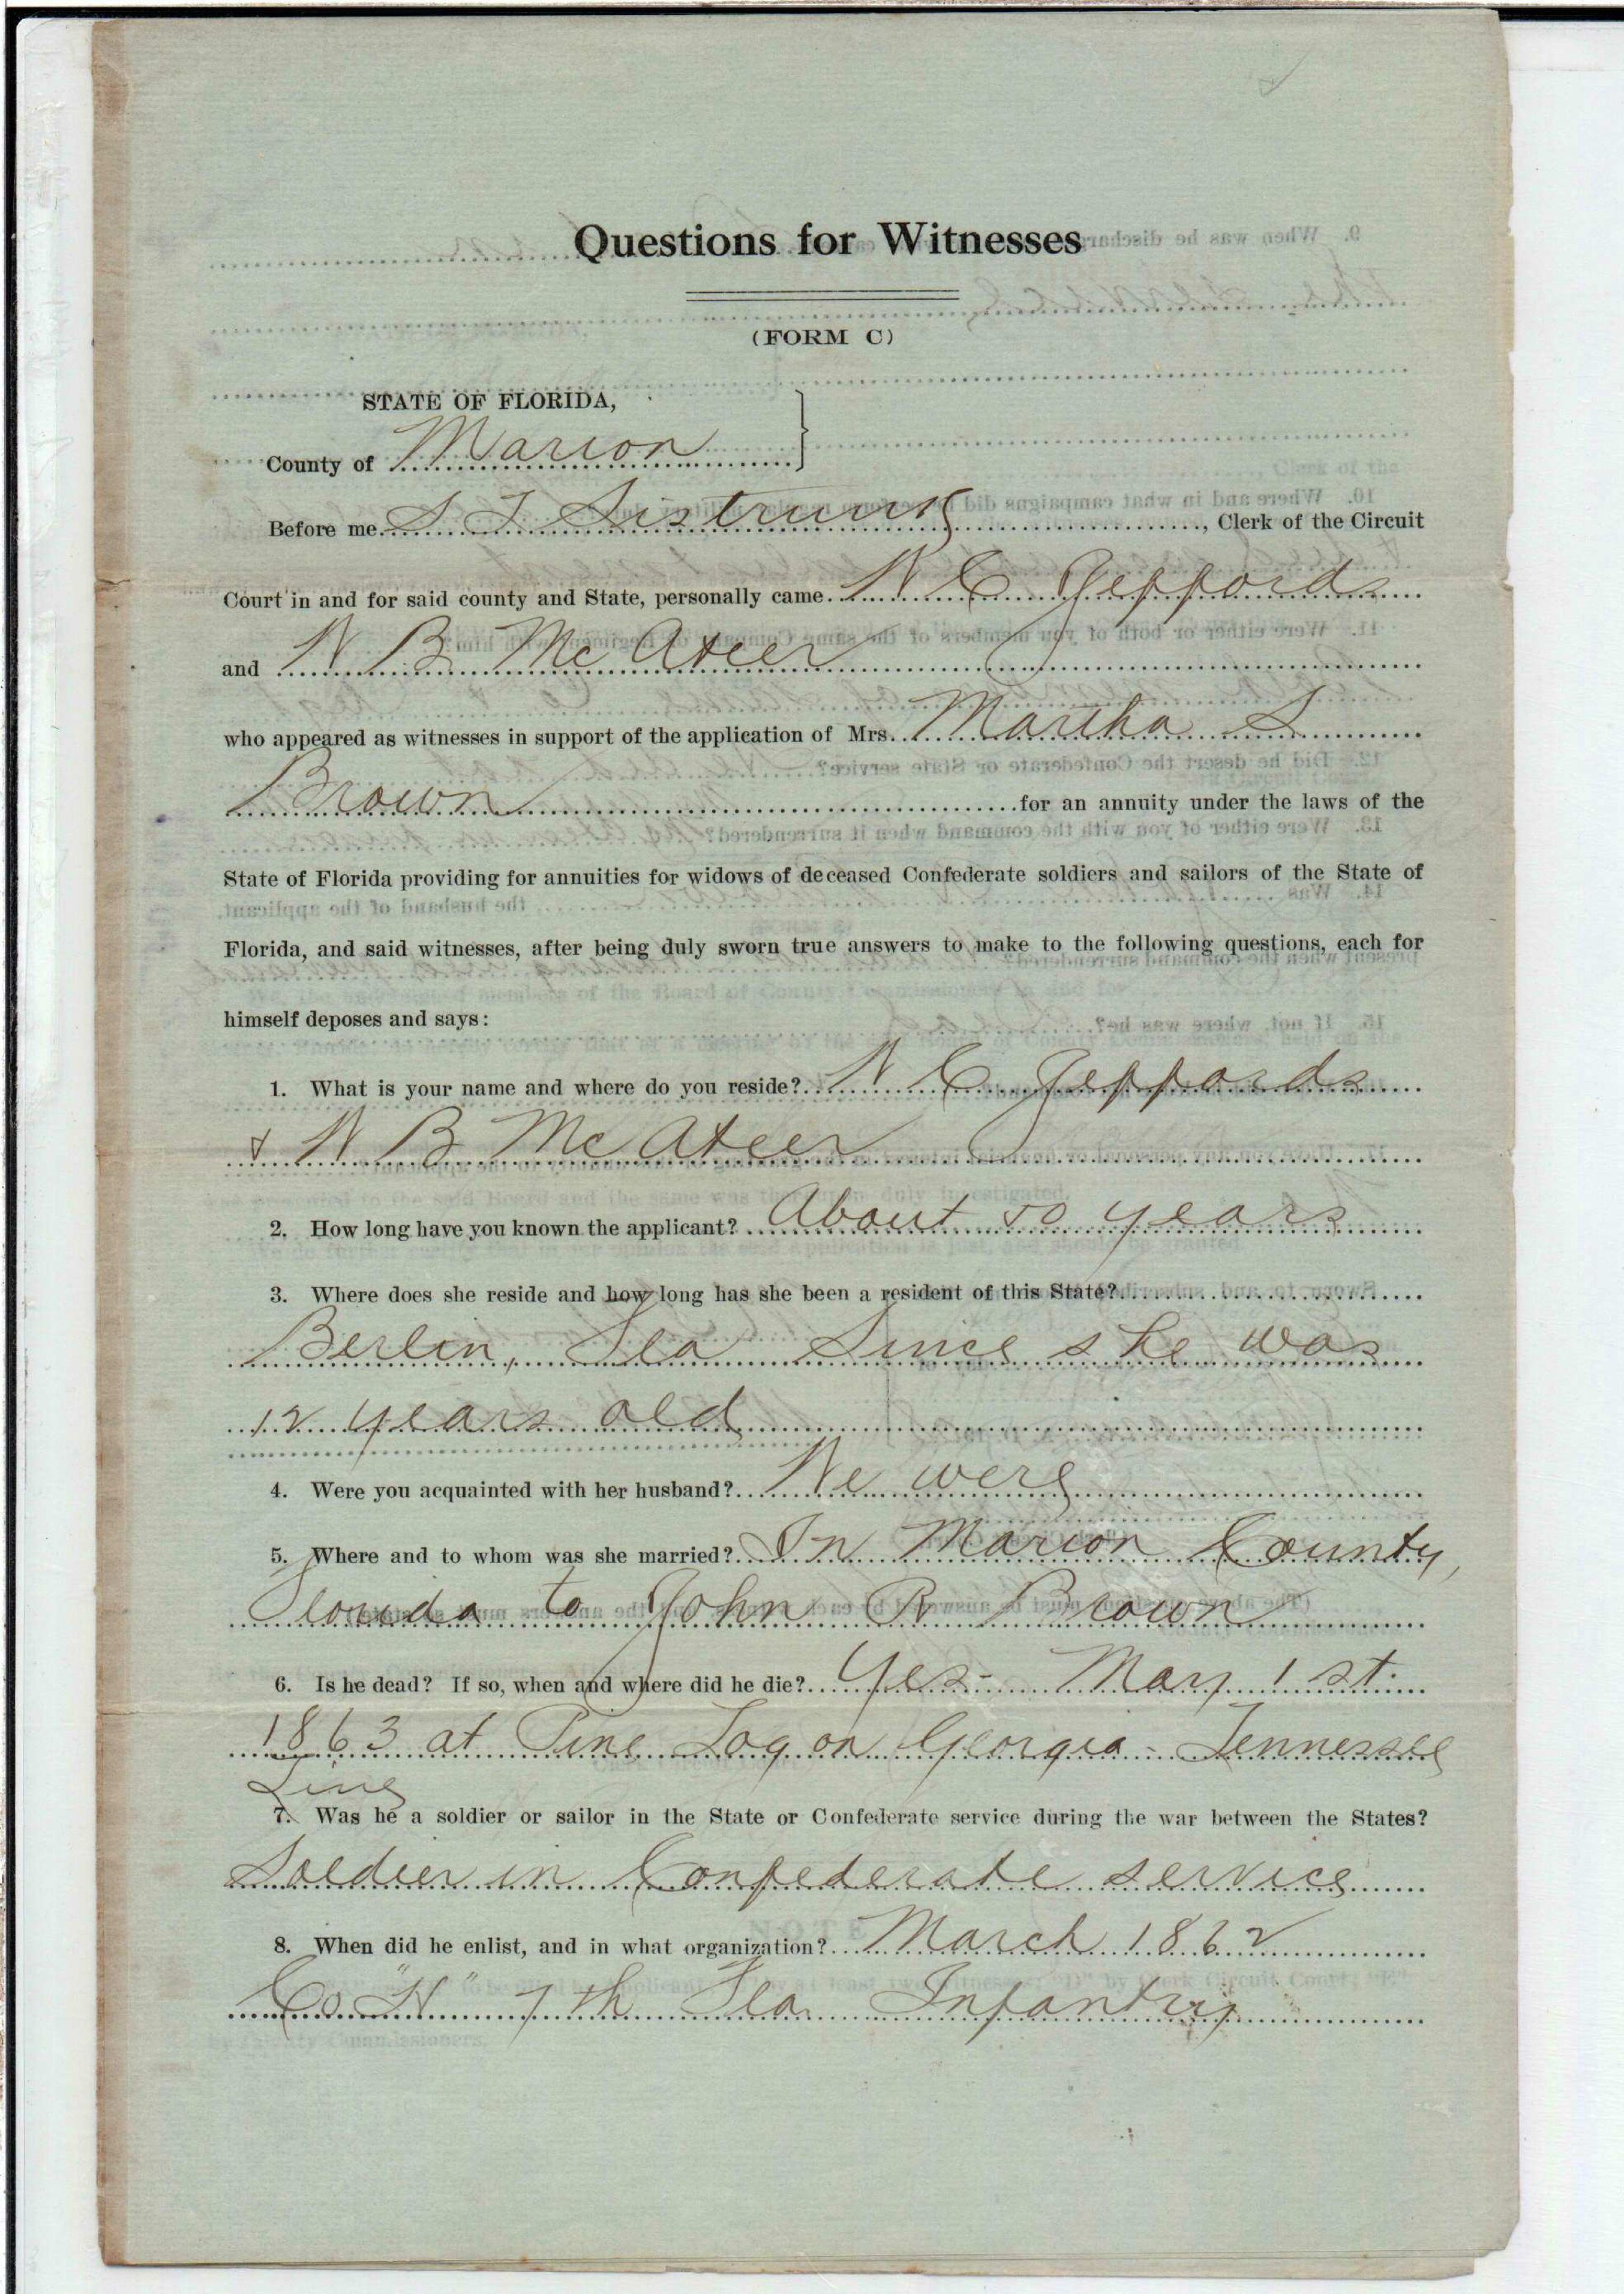 Questions for Witnesses
(FORM C)
STATE OF FLORIDA,
County of Marion
Before me S T Sistrunk, Clerk of the Circuit
Court in and for said county and State, personally came W C Jeffords
and W B McAteer
who appeared as witnesses in support of the application of Mrs. Martha S
Brown for an annuity under the laws of the
State of Florida providing for annuities for widows of deceased Confederate soldiers and sailors of the State of
Florida, and said witnesses, after being duly sworn true answers to make to the following questions, each for
himself deposes and says:
1. What is your name and where do you reside? W C Jeffords
& W B McAteer
2. How long have you known the applicant? About 50 years
3. Where does she reside and how long has she been a resident of this State?
Berlin, Fla Since she was
12 years old
4. Were you acquainted with her husband? We were
5. Where and to whom was she married? In Marion County,
Florida to John R Brown
6. Is he dead? If so, when and where did he die? Yes- May 1st.
1863 at Pine Log on Georgia-Tennessee
Line
7. Was he a soldier or sailor in the State or Confederate service during the war between the States?
Soldier in Confederate service
8. When did he enlist, and in what organization? March 1862
Co "H" 7th Fla. Infantry